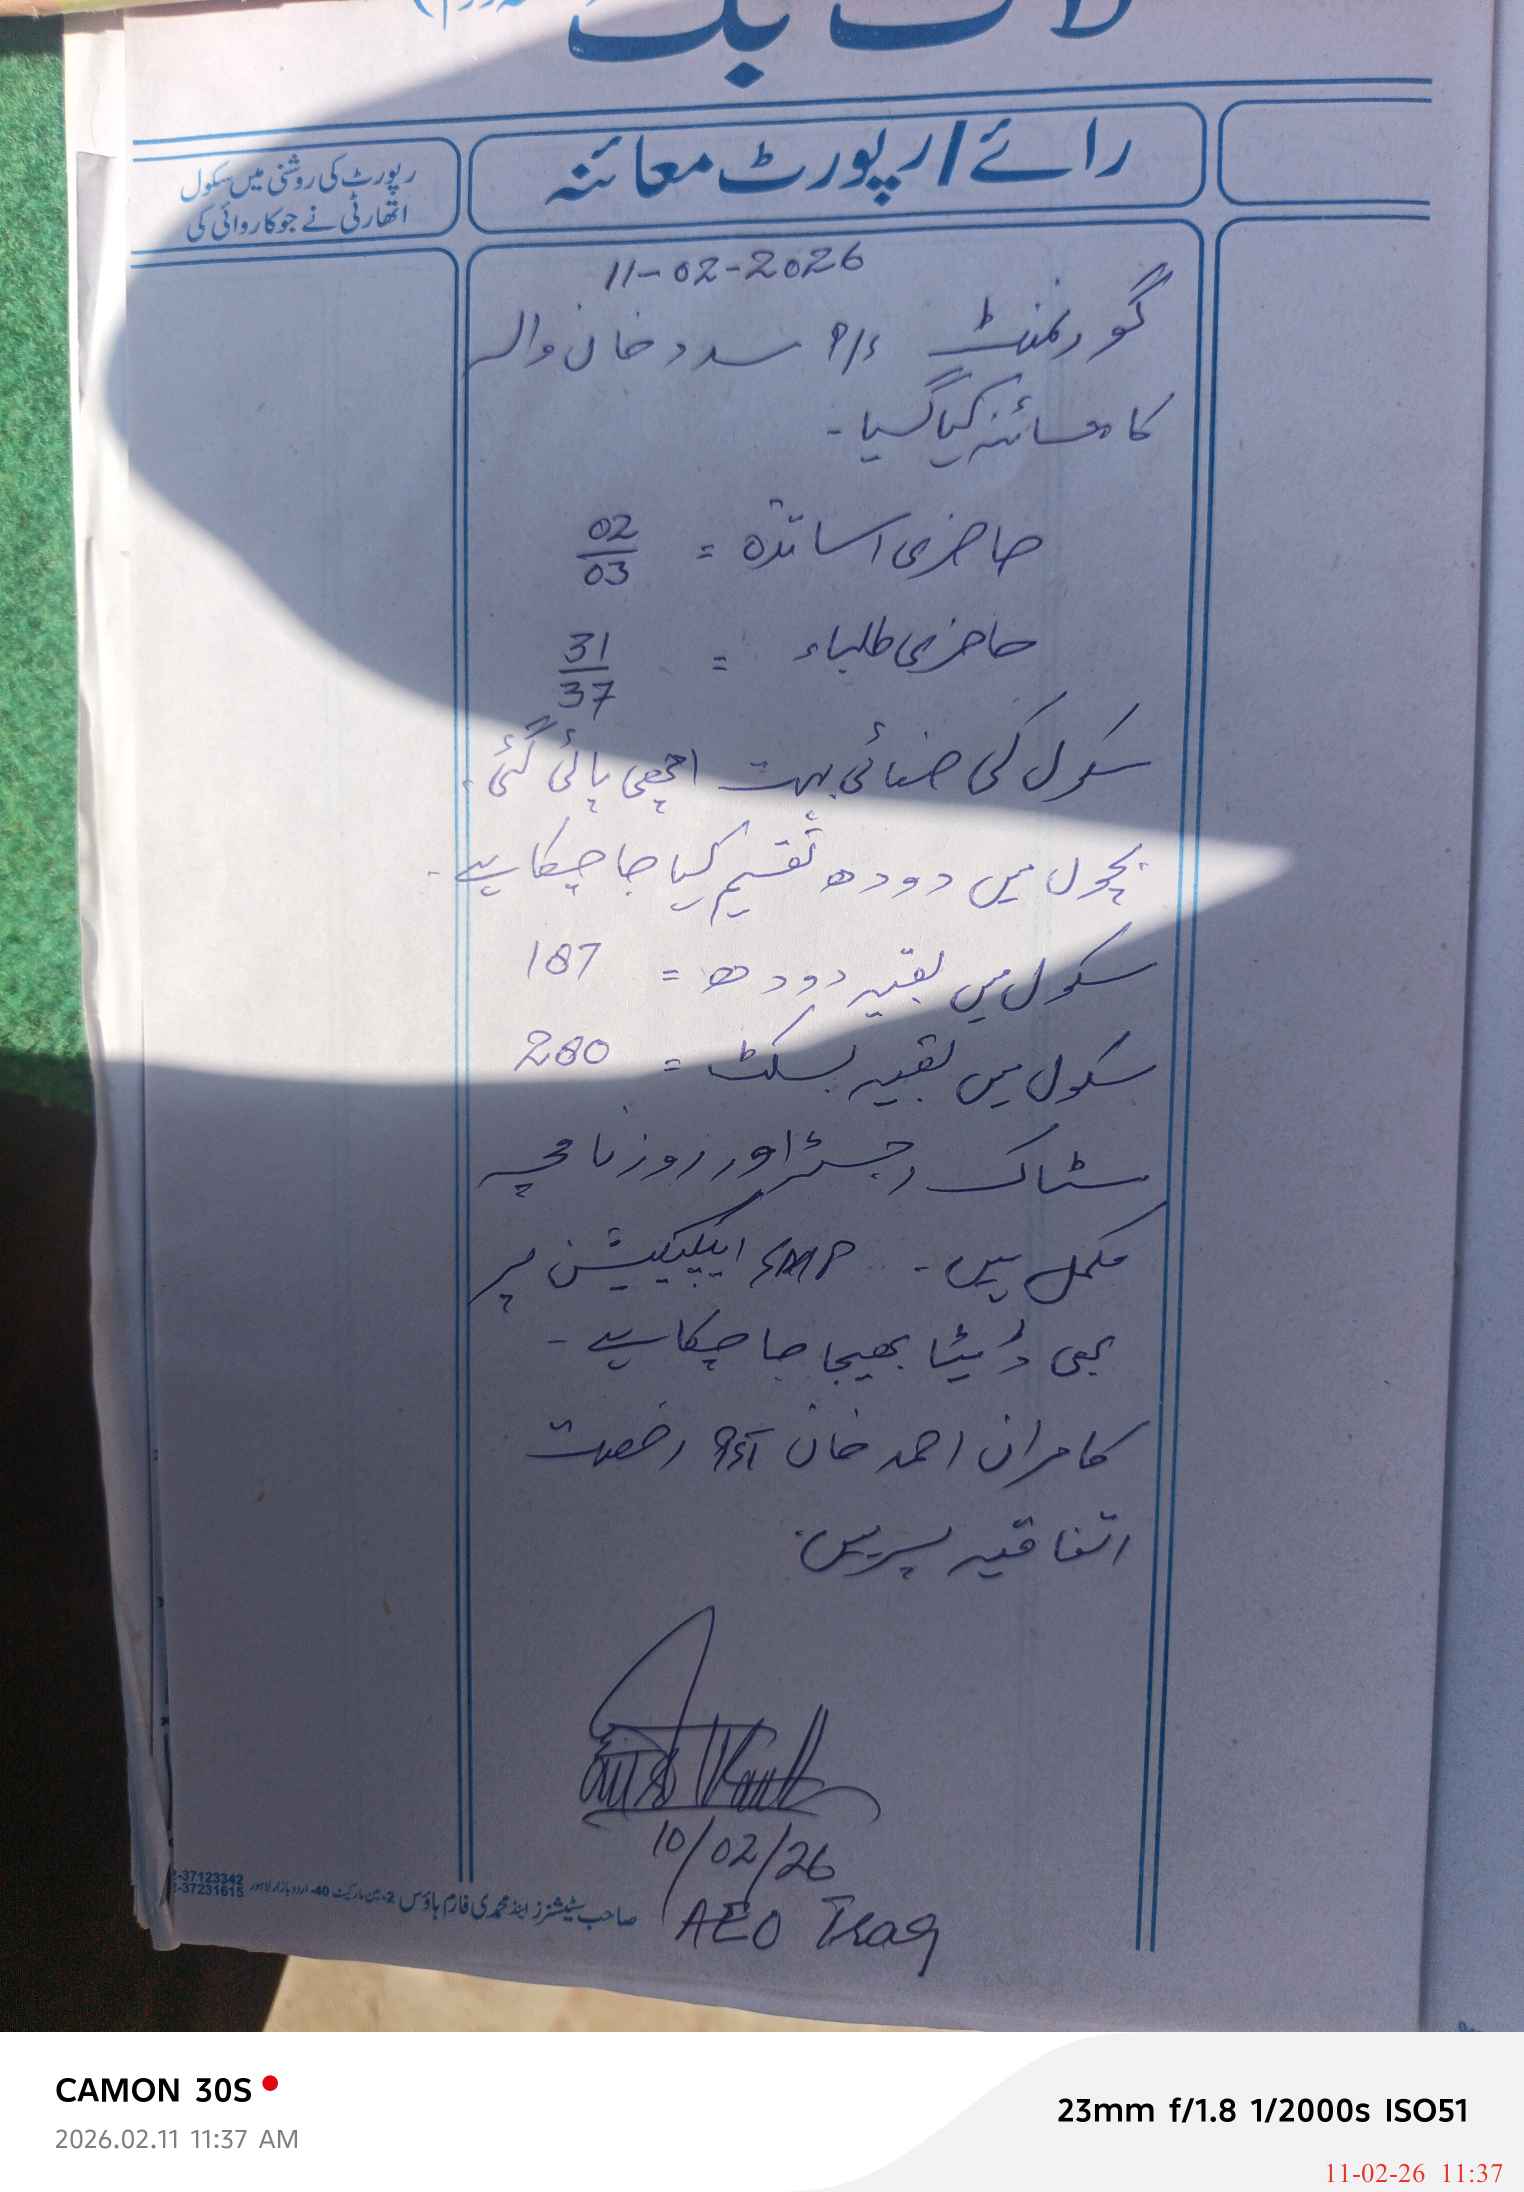 لاگ بک
رائے/رپورٹ معائنہ
رپورٹ کی روشنی میں سکول
اتھارٹی نے جو کاروائی کی
11-02-2026
گورنمنٹ P/S سدد خان والہ
کا معائنہ کیا گیا۔
حاضری اساتذہ = 02/03
حاضری طلباء = 31/37
سکول کی صفائی بہت اچھی پائی گئی۔
بچوں میں دودھ تقسیم کیا جا چکا ہے۔
سکول میں بقیہ دودھ = 187
سکول میں بقیہ بسکٹ = 280
سٹاک رجسٹر اور روزنامچہ
مکمل ہیں۔ SMP ایپلیکیشن پر
بھی ڈیٹا بھیجا جا چکا ہے۔
کامران احمد خان PST رخصت
اتفاقیہ پر ہیں۔
10/02/26
AEO Isaq
صاحب سٹیشنرز اینڈ محمدی فارم ہاؤس 2-مین مارکیٹ 40-اردو بازار لاہور
-37123342
-37231615
CAMON 30S
2026.02.11 11:37 AM
23mm f/1.8 1/2000s ISO51
11-02-26 11:37